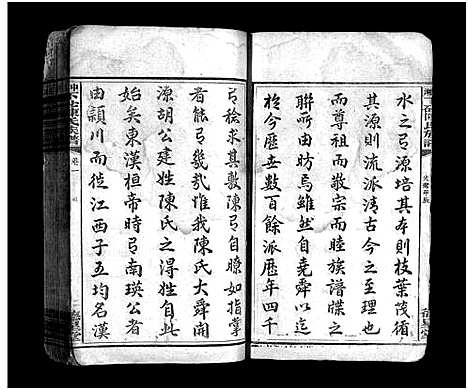 水之弓源培其本則枝葉茂循
其源則流派清古今之至理也
而尊祖而敬宗而睦族譜牒之
聯所由昉焉雖然自堯舜以迄
於今歷世數百餘派歷年四千
弓檢求其數陳弓自瞭如指掌
者能弓幾㢤惟我陳氏大舜開
源胡公建姓陳氏之得姓自此
始矣東漢桓帝時弓南瑛公者
由頴川而徙江西子五均名漢
陳氏族譜
卷一